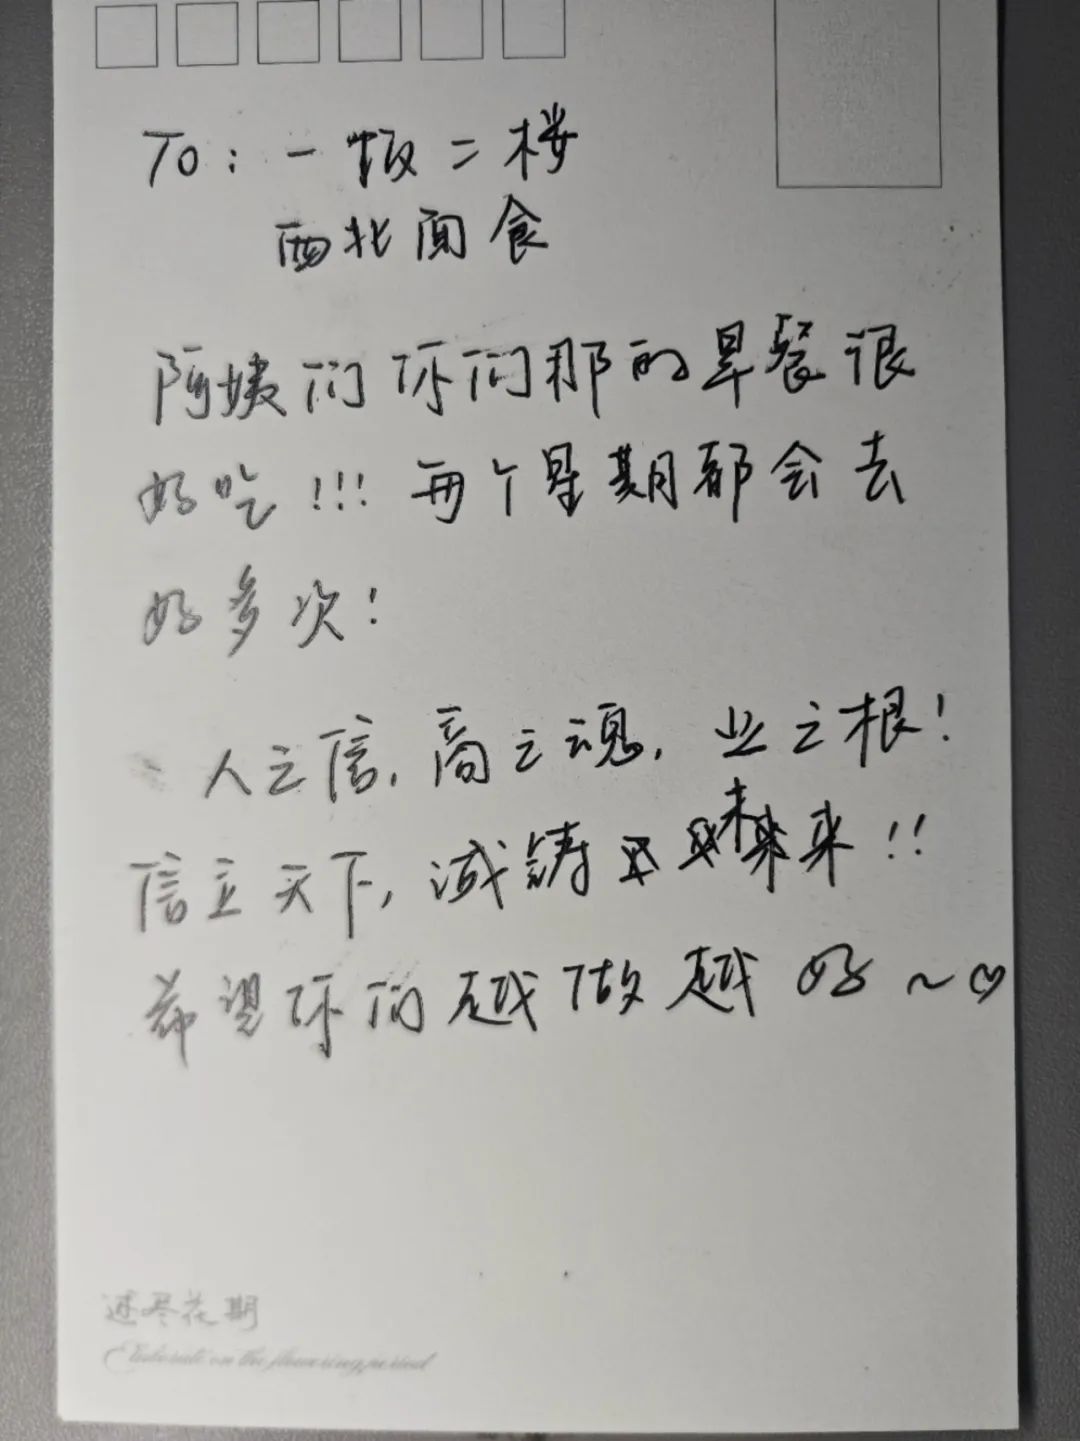 To：一饭二楼
西北面食
阿姨们你们那的早餐很
好吃!!! 每个星期都会去
好多次!
人之信，商之魂，业之根!
信立天下，诚铸未来!!
希望你们越做越好~♡
述尽花期
Elaborate on the flowering period